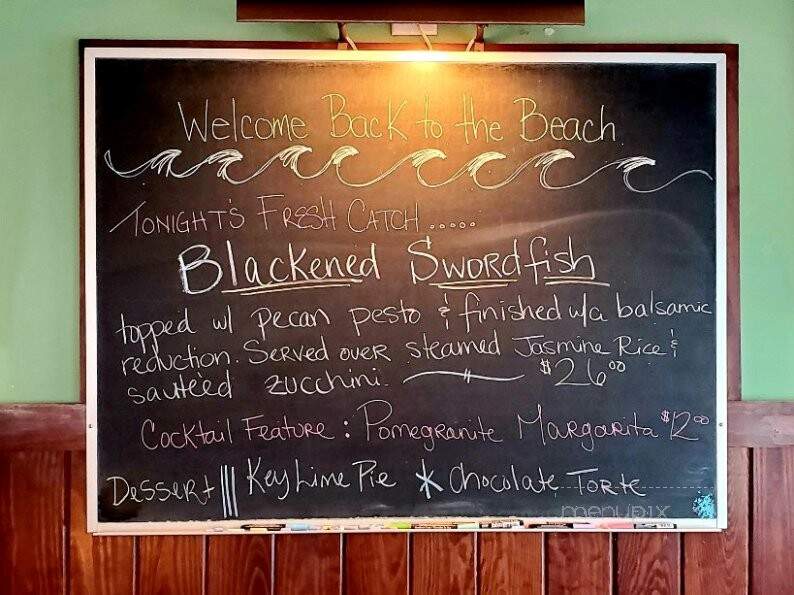 Welcome Back to the Beach
TONIGHT'S FRESH CATCH .....
Blackened Swordfish
topped w/ pecan pesto & finished w/a balsamic
reduction. Served over steamed Jasmine Rice &
sautéed zucchini. $26.00
Cocktail Feature: Pomegranite Margarita $12.00
Dessert ||| Key Lime Pie * Chocolate Torte
menupix